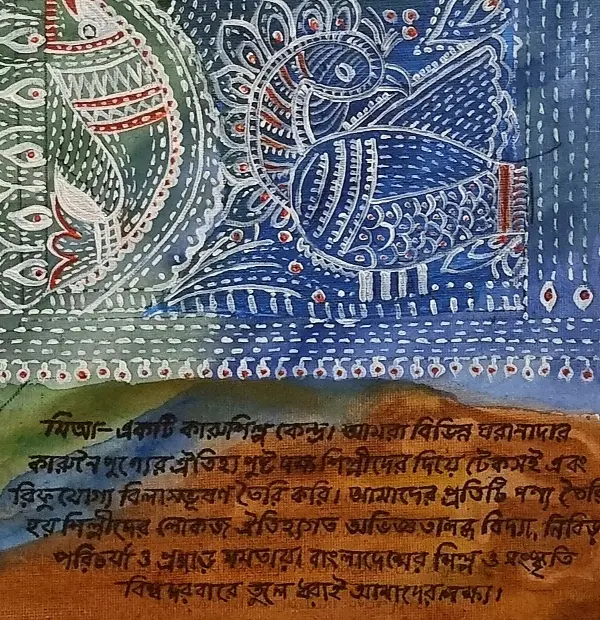 মিআ- একটি কারুশিল্প কেন্দ্র। আমরা বিভিন্ন ঘরানাদার
কারুনৈপুণ্যের ঐতিহ্য পুষ্ট দক্ষ শিল্পীদের দিয়ে টেকসই এবং
রিফু যোগ্য বিলাসভূষণ তৈরি করি। আমাদের প্রতিটি পণ্য তৈরি
হয় শিল্পীদের লোকজ ঐতিহ্যগত অভিজ্ঞতালব্ধ বিদ্যা, নিবিড়
পরিচর্যা ও প্রগাঢ় মমতায়। বাংলাদেশের শিল্প ও সংস্কৃতি
বিশ্ব দরবারে তুলে ধরাই আমাদের লক্ষ্য।